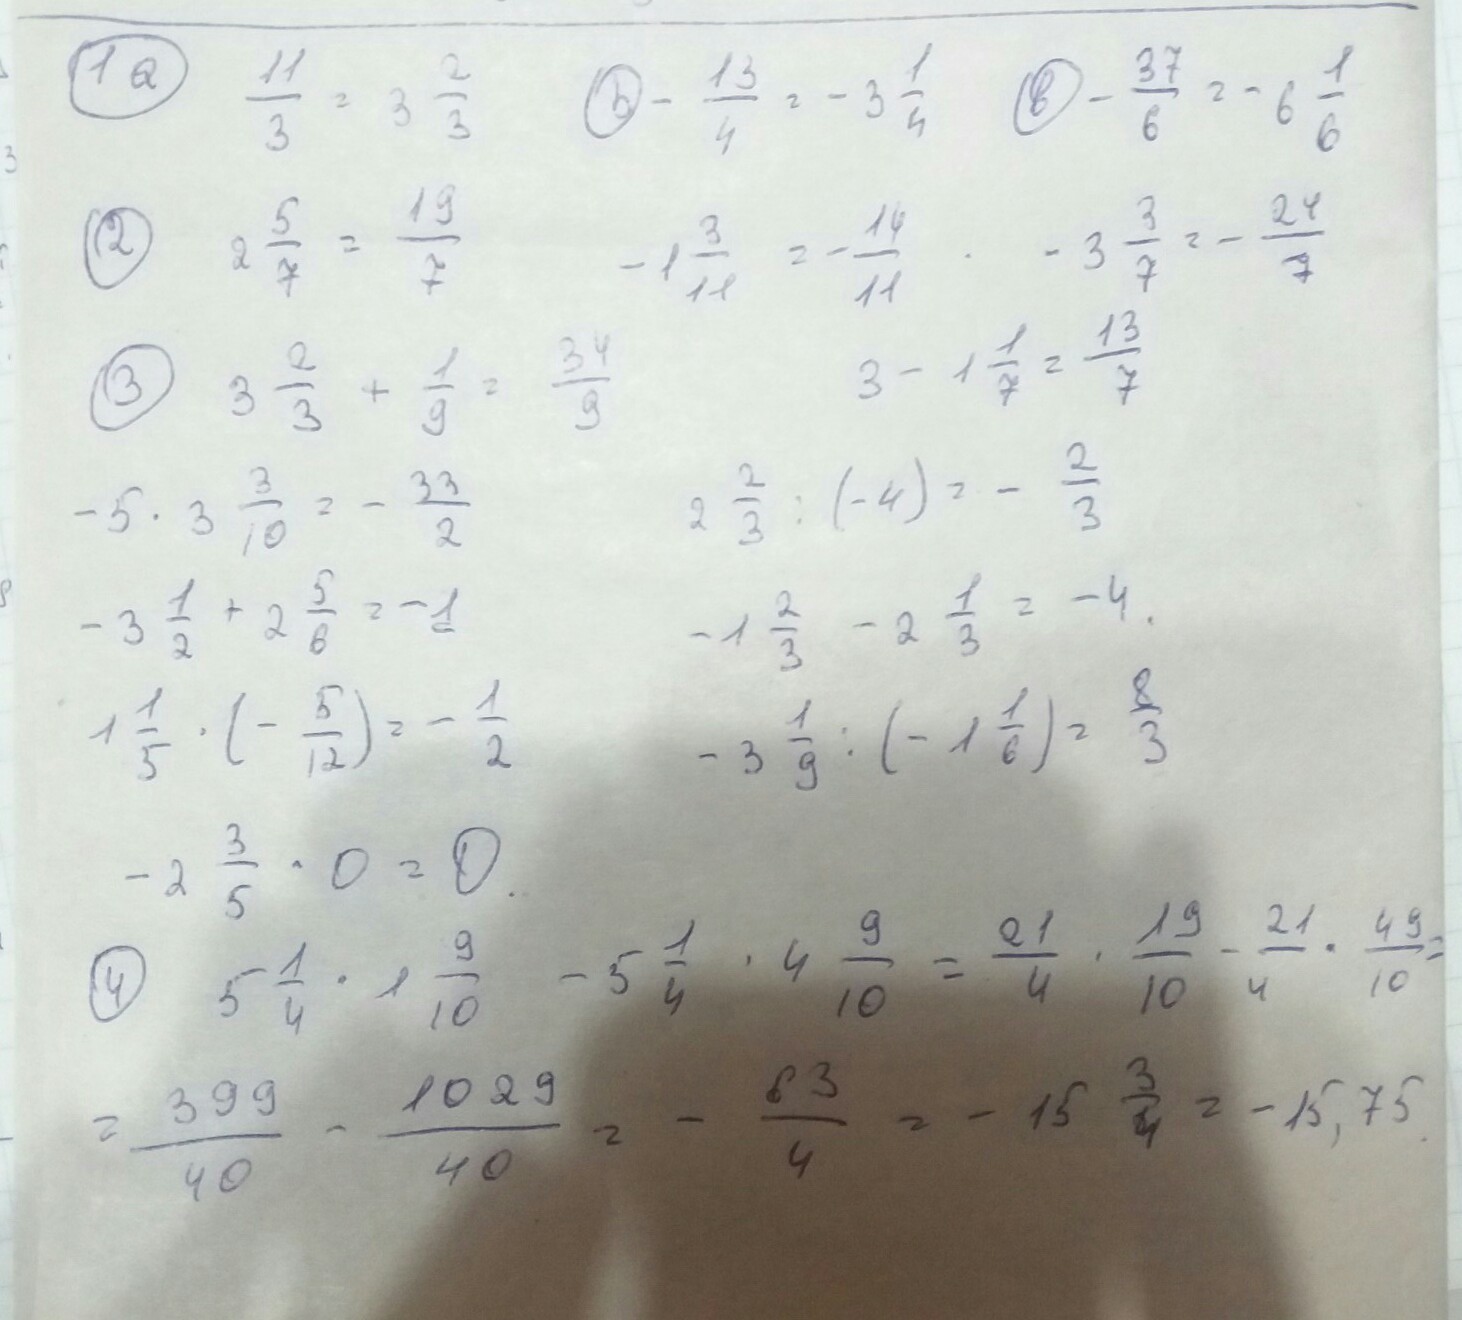 1а 11/3 = 3 2/3 б - 13/4 = - 3 1/4 в - 37/6 = - 6 1/6
2 2 5/7 = 19/7 - 1 3/11 = - 14/11 . - 3 3/7 = - 24/7
3 3 2/3 + 1/9 = 34/9 3 - 1 1/7 = 13/7
- 5 · 3 3/10 = - 33/2 2 2/3 : (- 4) = - 2/3
- 3 1/2 + 2 5/6 = - 1 - 1 2/3 - 2 1/3 = - 4.
1 1/5 · (- 5/12) = - 1/2 - 3 1/9 : (- 1 1/6) = 8/3
- 2 3/5 · 0 = 0.
4 5 1/4 · 1 9/10 - 5 1/4 · 4 9/10 = 21/4 · 19/10 - 21/4 · 49/10 =
= 399/40 - 1029/40 = - 63/4 = - 15 3/4 = - 15,75.